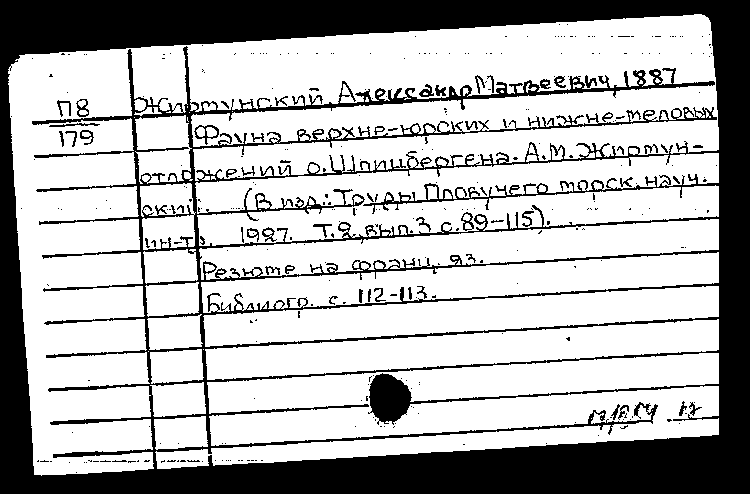 П8
179
Жирмунский, Александр Матвеевич, 1887
Фауна верхне-юрских и нижне-меловых
отложений о. Шпицбергена. А.М. Жирмун-
ский. (В изд.: Труды Пловучего морск. науч.
ин-та. 1927. Т.2, вып.3 с.89-115).
Резюме на франц. яз.
Библиогр. с. 112-113.